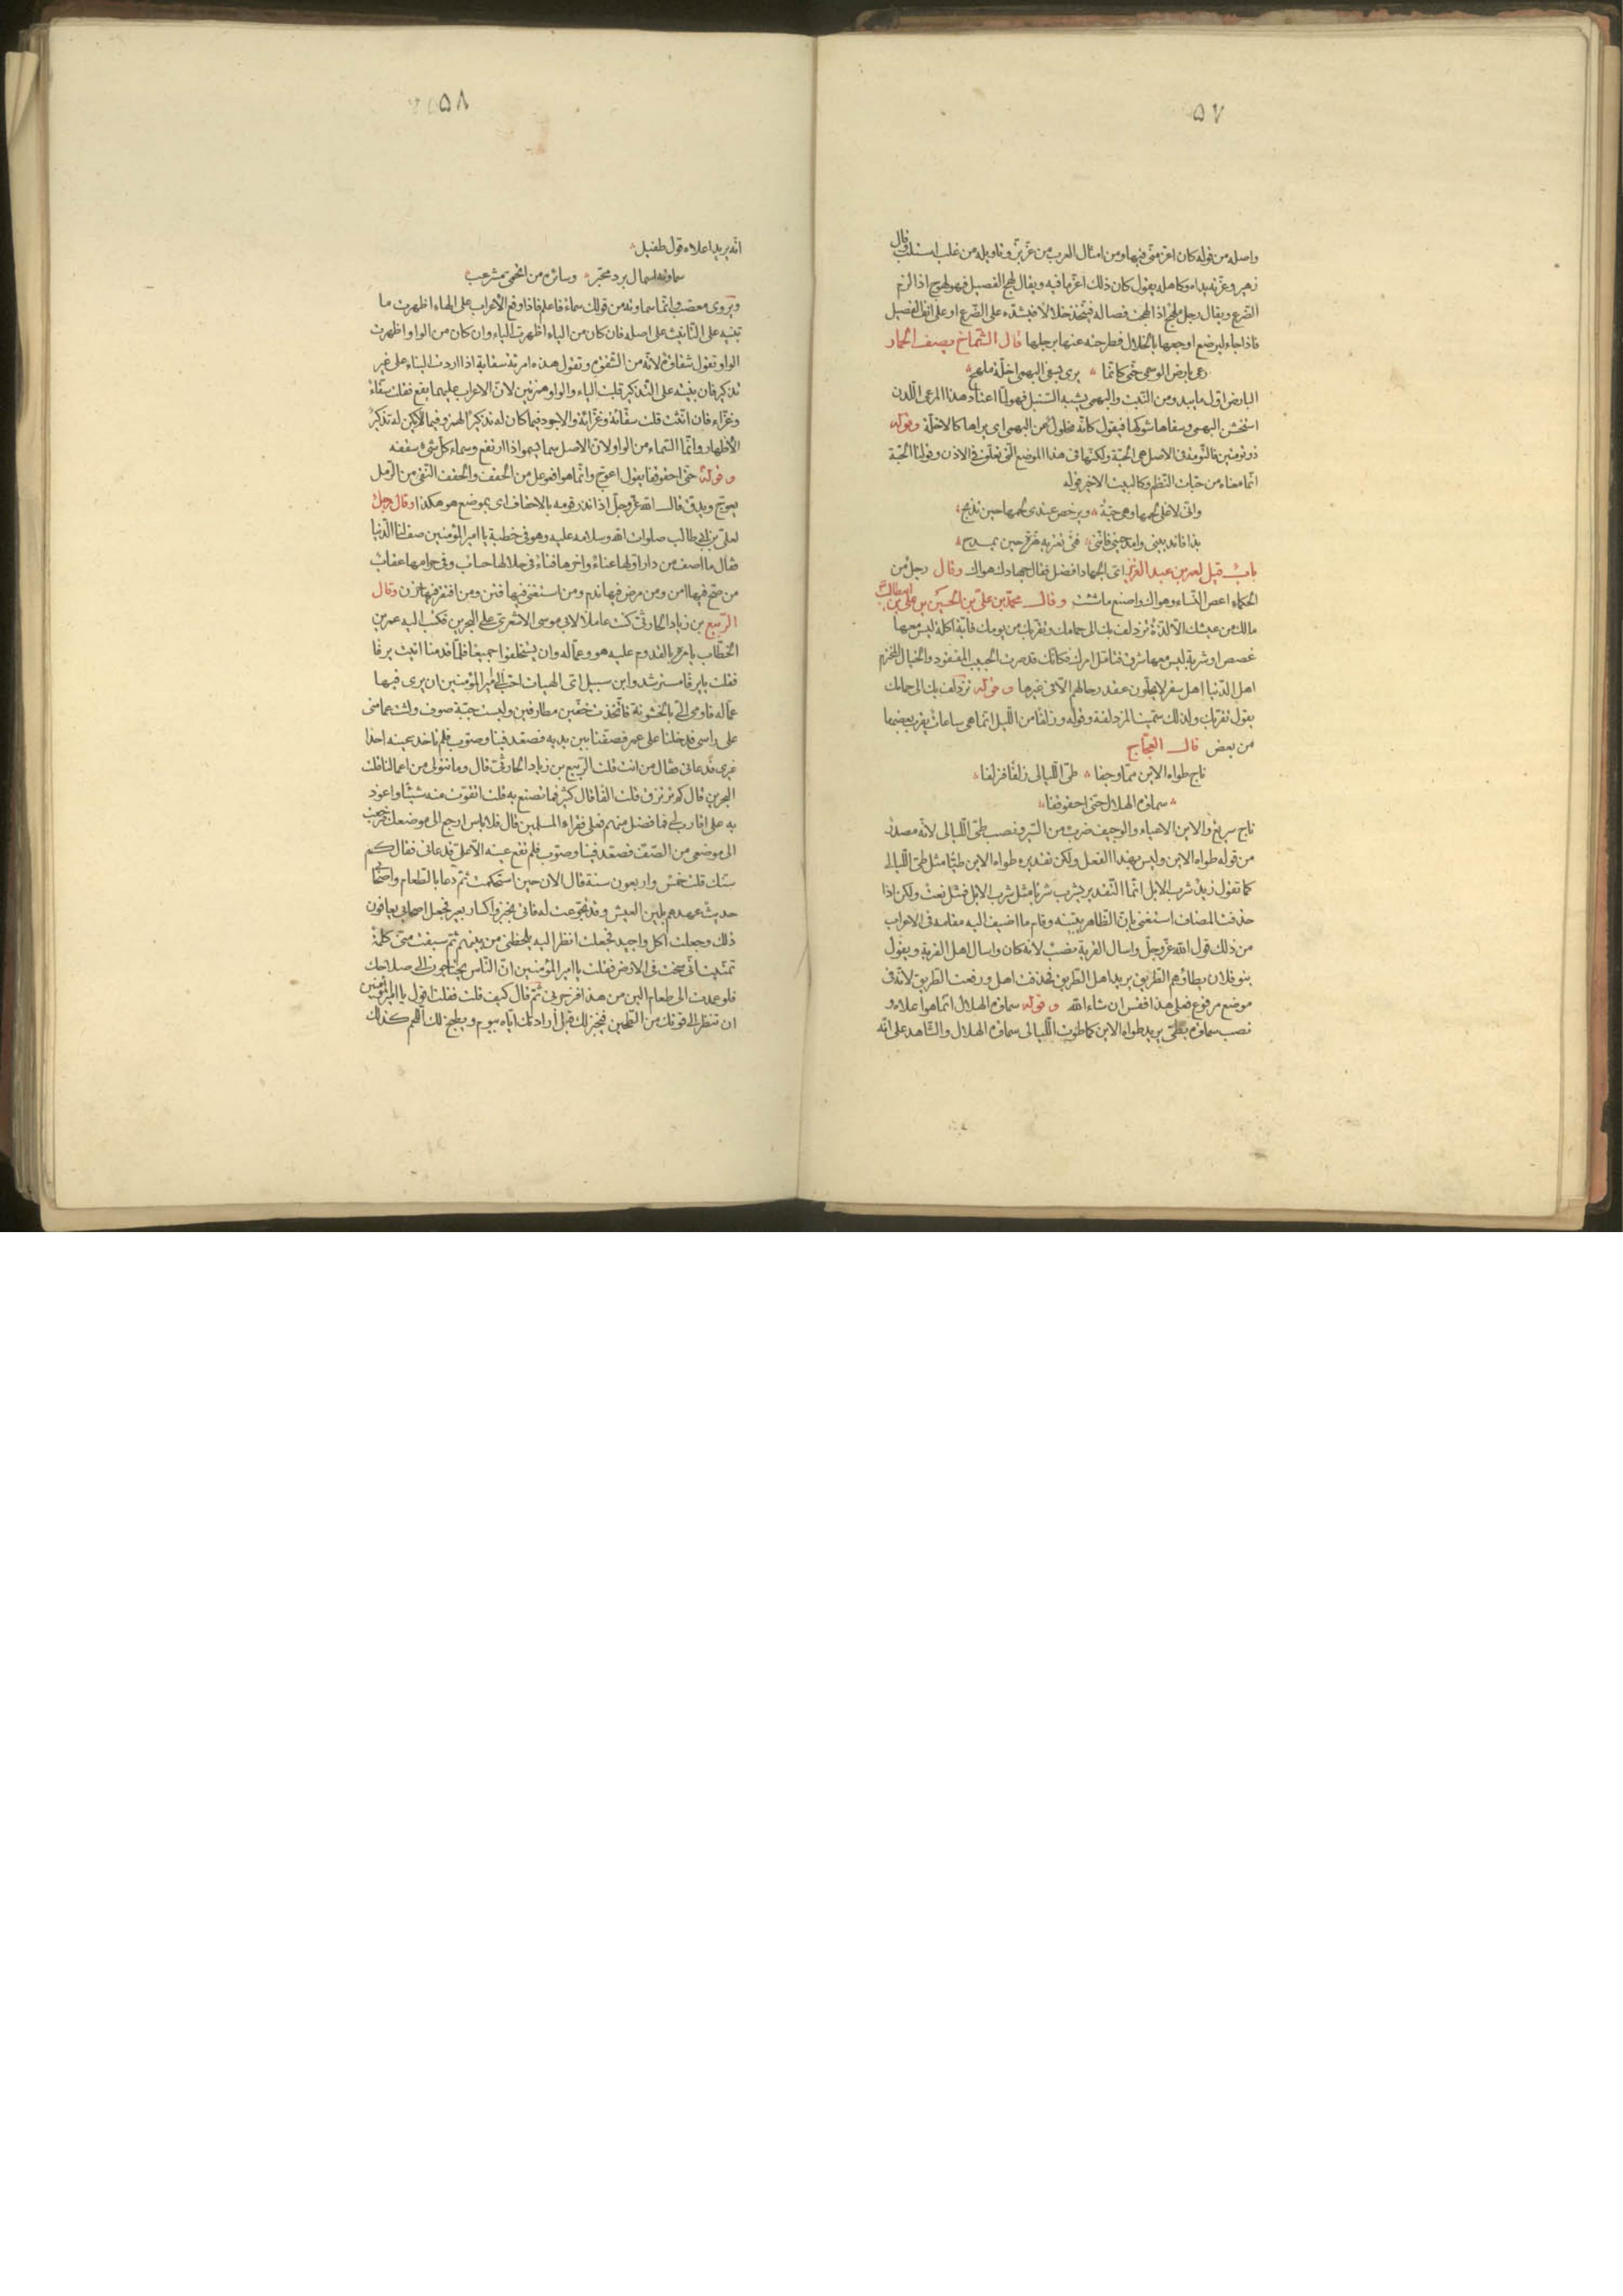 ٥٧
واصله من قوله كان اعز منى فيها ومن امثال العرب من عزّ بزّ وتاويله من غلب استلب وقال
زهير وعزته يداه وكاهله يقول كان ذلك اعز ما فيه ويقال لهج الفصيل فهو لهج اذا لزم
الضرع ويقال رجل ملهج اذا لهجت فصاله فيتخذ خلالا فيشدّه على الضرع او على انف الفصيل
فاذا جاء ليرضع اوجعها بالخلال فطرحته عنها برجلها قال الشماخ يصف الحمار
رعى بارض الوسمى حتى كانما يرى بسفى البهمى اخلّة ملهج
البارض اول ما يبدو من النبت والبهمى يشبه السنبل فهو لما اعتاد هذا المرعى اللدن
استخشن البهمى وسفاها شوكها فيقول كانه مخلول عن البهمى اى يراها كالاخلة وقوله
ذو تومتين فالتومة فى الاصل هى الحبة ولكنها فى هذا الموضع التى تعلق فى الاذن وقولنا الحبة
انما معناه من حبات النظم وكالبيت الاخير قوله
وانى لاغلى لحمها وهى حية ويرخص عندى لحمها حين تذبح
بذا فاندبينى وامدحينى فاننى فتى تعتريه هزة حين يمدح
باب قيل لعمر بن عبد العزيز اى الجهاد افضل فقال جهادك هواك وقال رجل من
الحكماء اعص النساء وهواك واصنع ما شئت وقال محمد بن على بن الحسين بن على بن ابيطالب
مالك من عيشك الا لذة تزدلف بك الى حمامك وتقربك من يومك فاية اكلة ليس معها
غصص او شربة ليس معها شرق فتامل امرك فكانك قد صرت الحبيب المفقود والخيال المخترم
اهل الدنيا اهل سفر لا يحلون عقد رحالهم الا فى غيرها وقوله تزدلف بك الى حمامك
يقول تقربك ولذلك سميت المزدلفة وقوله وزلفا من الليل انما هى ساعات يقرب بعضها
من بعض قال العجاج
ناج طواه الاين مما وجفا طى الليالى زلفا فزلفا
سماوة الهلال حتى احقوقفا
ناج سريع والاين الاعياء والوجيف ضرب من السير ونصب طى الليالى لانه مصدر
من قوله طواه الاين وليس بهذا الفعل ولكن تقديره طواه الاين طيا مثل طى الليالى
كما تقول زيد شرب الابل انما التقدير يشرب شربا مثل شرب الابل فمثل نعت ولكن اذا
حذفت المضاف استغنى بان الظاهر يبينه وقام ما اضيف اليه مقامه فى الاعراب
من ذلك قول الله عز وجل واسال القرية نصب لانه كان واسال اهل القرية ويقول
بنو فلان يطاؤهم الطريق يريد اهل الطريق فحذفت اهل ورفعت الطريق لانه فى
موضع مرفوع فعلى هذا فقس ان شاء الله وقوله سماوة الهلال انما هو اعلاه و
نصب سماوة بطى يريد طواه الاين كما طوت الليالى سماوة الهلال والشاهد على انه
٥٨
انه يريد اعلاه قول طفيل
سماوته اسمال برد محبر وسائره من اتحمى مشرعب
ويروى معصب وانما سماوته من قولك سماء فاعلم فاذا وقع الاعراب على الهاء اظهرت ما
تبنيه على التانيث على اصله فان كان من الياء اظهرت الياء وان كان من الواو اظهرت
الواو تقول شقاوة لانه من الشقوة وتقول هذه امرءة سقاية اذا اردت البناء على غير
تذكير فان بنيته على التذكير قلبت الياء والواو همزتين لان الاعراب عليهما يقع فقلت سقاء
وغزاء فان انثت قلت سقاءة وغزاءة والاجود فيما كان له تذكير الهمز وفيما لا يكن له تذكير
الاظهار وانما السماء من الواو لان الاصل سما يسمو اذا ارتفع وسماء كل شئ سقفه
وقوله حتى احقوقفا يقول اعوج وانما هو افعوعل من الحقف والحقف النقى من الرمل
يعوج ويدق قال الله عز وجل اذ انذر قومه بالاحقاف اى بموضع هو هكذا وقال رجل
لعلى بن ابى طالب صلوات الله وسلامه عليه وهو فى خطبة يا امير المؤمنين صف لنا الدنيا
فقال ما اصف من دار اولها عناء واخرها فناء فى حلالها حساب وفى حرامها عقاب
من صح فيها امن ومن مرض فيها ندم ومن استغنى فيها فتن ومن افتقر فيها حزن وقال
الربيع بن زياد الحارثى كنت عاملا لابى موسى الاشعرى على البحرين فكتب اليه عمر بن
الخطاب يامره بالقدوم عليه هو وعماله وان يستخلفوا جميعا فلما قدمنا اتيت يرفا
فقلت يا يرفا مسترشد وابن سبيل اى الهيات احب الى امير المؤمنين ان يرى فيها
عماله فاومى الى بالخشونة فاتخذت خفين مطارقين ولبست جبة صوف ولثت عمامتى
على راسى فدخلنا على عمر فصفنا بين يديه فصعد فينا وصوب فلم تاخذ عينه احدا
غيرى فدعانى فقال من انت قلت الربيع بن زياد الحارثى قال وما تتولى من اعمالنا قلت
البحرين قال كم ترتزق قلت الفا قال كثير فما تصنع به قلت اتقوت منه شيئا واعود
به على اقارب لى فما فضل منهم فعلى فقراء المسلمين قال فلا باس ارجع الى موضعك فرجعت
الى موضعى من الصف فصعد فينا وصوب فلم تقع عينه الا على فدعانى فقال كم
سنك قلت خمس واربعون سنة قال الان حين استحكمت ثم دعا بالطعام واصحابى
حديث عهدهم بلين العيش وقد تجوعت له فاتى بخبز واكسار بعير فجعل اصحابى يعافون
ذلك وجعلت اكل واجيد فجعلت انظر اليه يلحظنى من بينهم ثم سبقت منى كلمة
تمنيت انى سخت فى الارض فقلت يا امير المؤمنين ان الناس يحتاجون الى صلاحك
فلو عمدت الى طعام الين من هذا فزجرنى ثم قال كيف قلت فقلت اقول يا امير المؤمنين
ان تنظر الى قوتك من الطحين فيخبز لك قبل ارادتك اياه بيوم ويطبخ لك اللحم كذلك